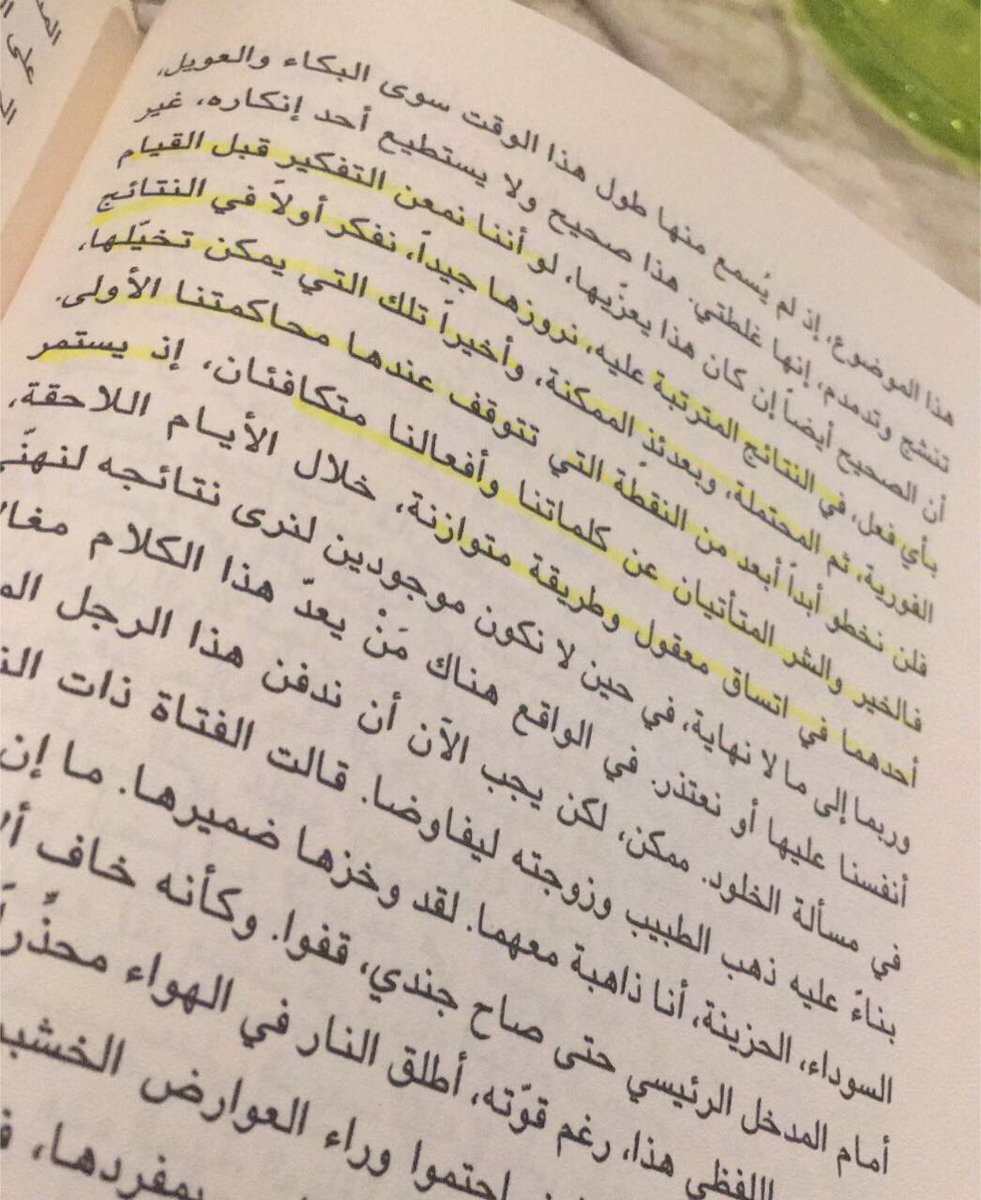 هذا الموضوع، إذ لم يُسمع منها طول هذا الوقت سوى البكاء والعويل،
تنشج وتدمدم، إنها غلطتي. هذا صحيح ولا يستطيع أحد إنكاره، غير
أن الصحيح أيضاً إن كان هذا يعزّيها، لو أننا نمعن التفكير قبل القيام
بأي فعل، في النتائج المترتبة عليه، نروزها جيداً، نفكر أولاً في النتائج
الفورية، ثم المحتملة، وبعدئذ الممكنة، وأخيراً تلك التي يمكن تخيّلها،
فلن نخطو أبداً أبعد من النقطة التي تتوقف عندها محاكمتنا الأولى.
فالخير والشر المتأتيان عن كلماتنا وأفعالنا متكافئان، إذ يستمر
أحدهما في اتساق معقول وطريقة متوازنة، خلال الأيام اللاحقة،
وربما إلى ما لا نهاية، في حين لا نكون موجودين لنرى نتائجه لنهنّئ
أنفسنا عليها أو نعتذر. في الواقع هناك مَنْ يعدّ هذا الكلام
في مسألة الخلود. ممكن، لكن يجب الآن أن ندفن هذا الرجل
بناءً عليه ذهب الطبيب وزوجته ليفاوضا. قالت الفتاة ذات
السوداء، الحزينة، أنا ذاهبة معهما. لقد وخزها ضميرها. ما إن
أمام المدخل الرئيسي حتى صاح جندي، قفوا. وكأنه خاف
اللفظي هذا، رغم قوّته، أطلق النار في الهواء
احتموا وراء العوارض
بمفردها،
على